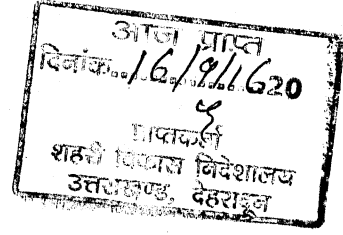 आज प्राप्त
दिनांक...16/9/1620
प्राप्तकर्ता
शहरी विकास निदेशालय
उत्तराखण्ड, देहरादून